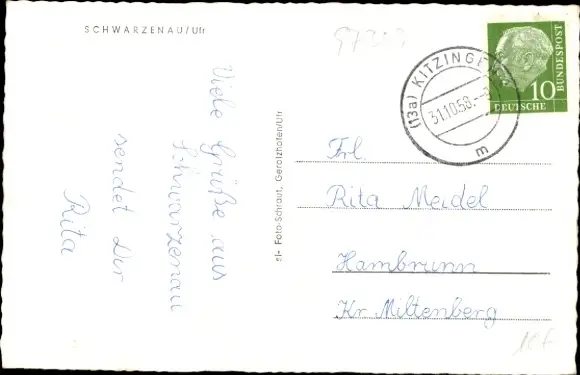 SCHWARZENAU/Ufr
97303
(13a) KITZINGEN
31.10.58.
m
10
DEUTSCHE
BUNDESPOST
Viele Grüße aus
Schwarzenau
sendet Dir
Rita
el- Foto-Schraut, Gerolzhofen/Ufr
Frl.
Rita Meidel
Hambrunn
Kr. Miltenberg